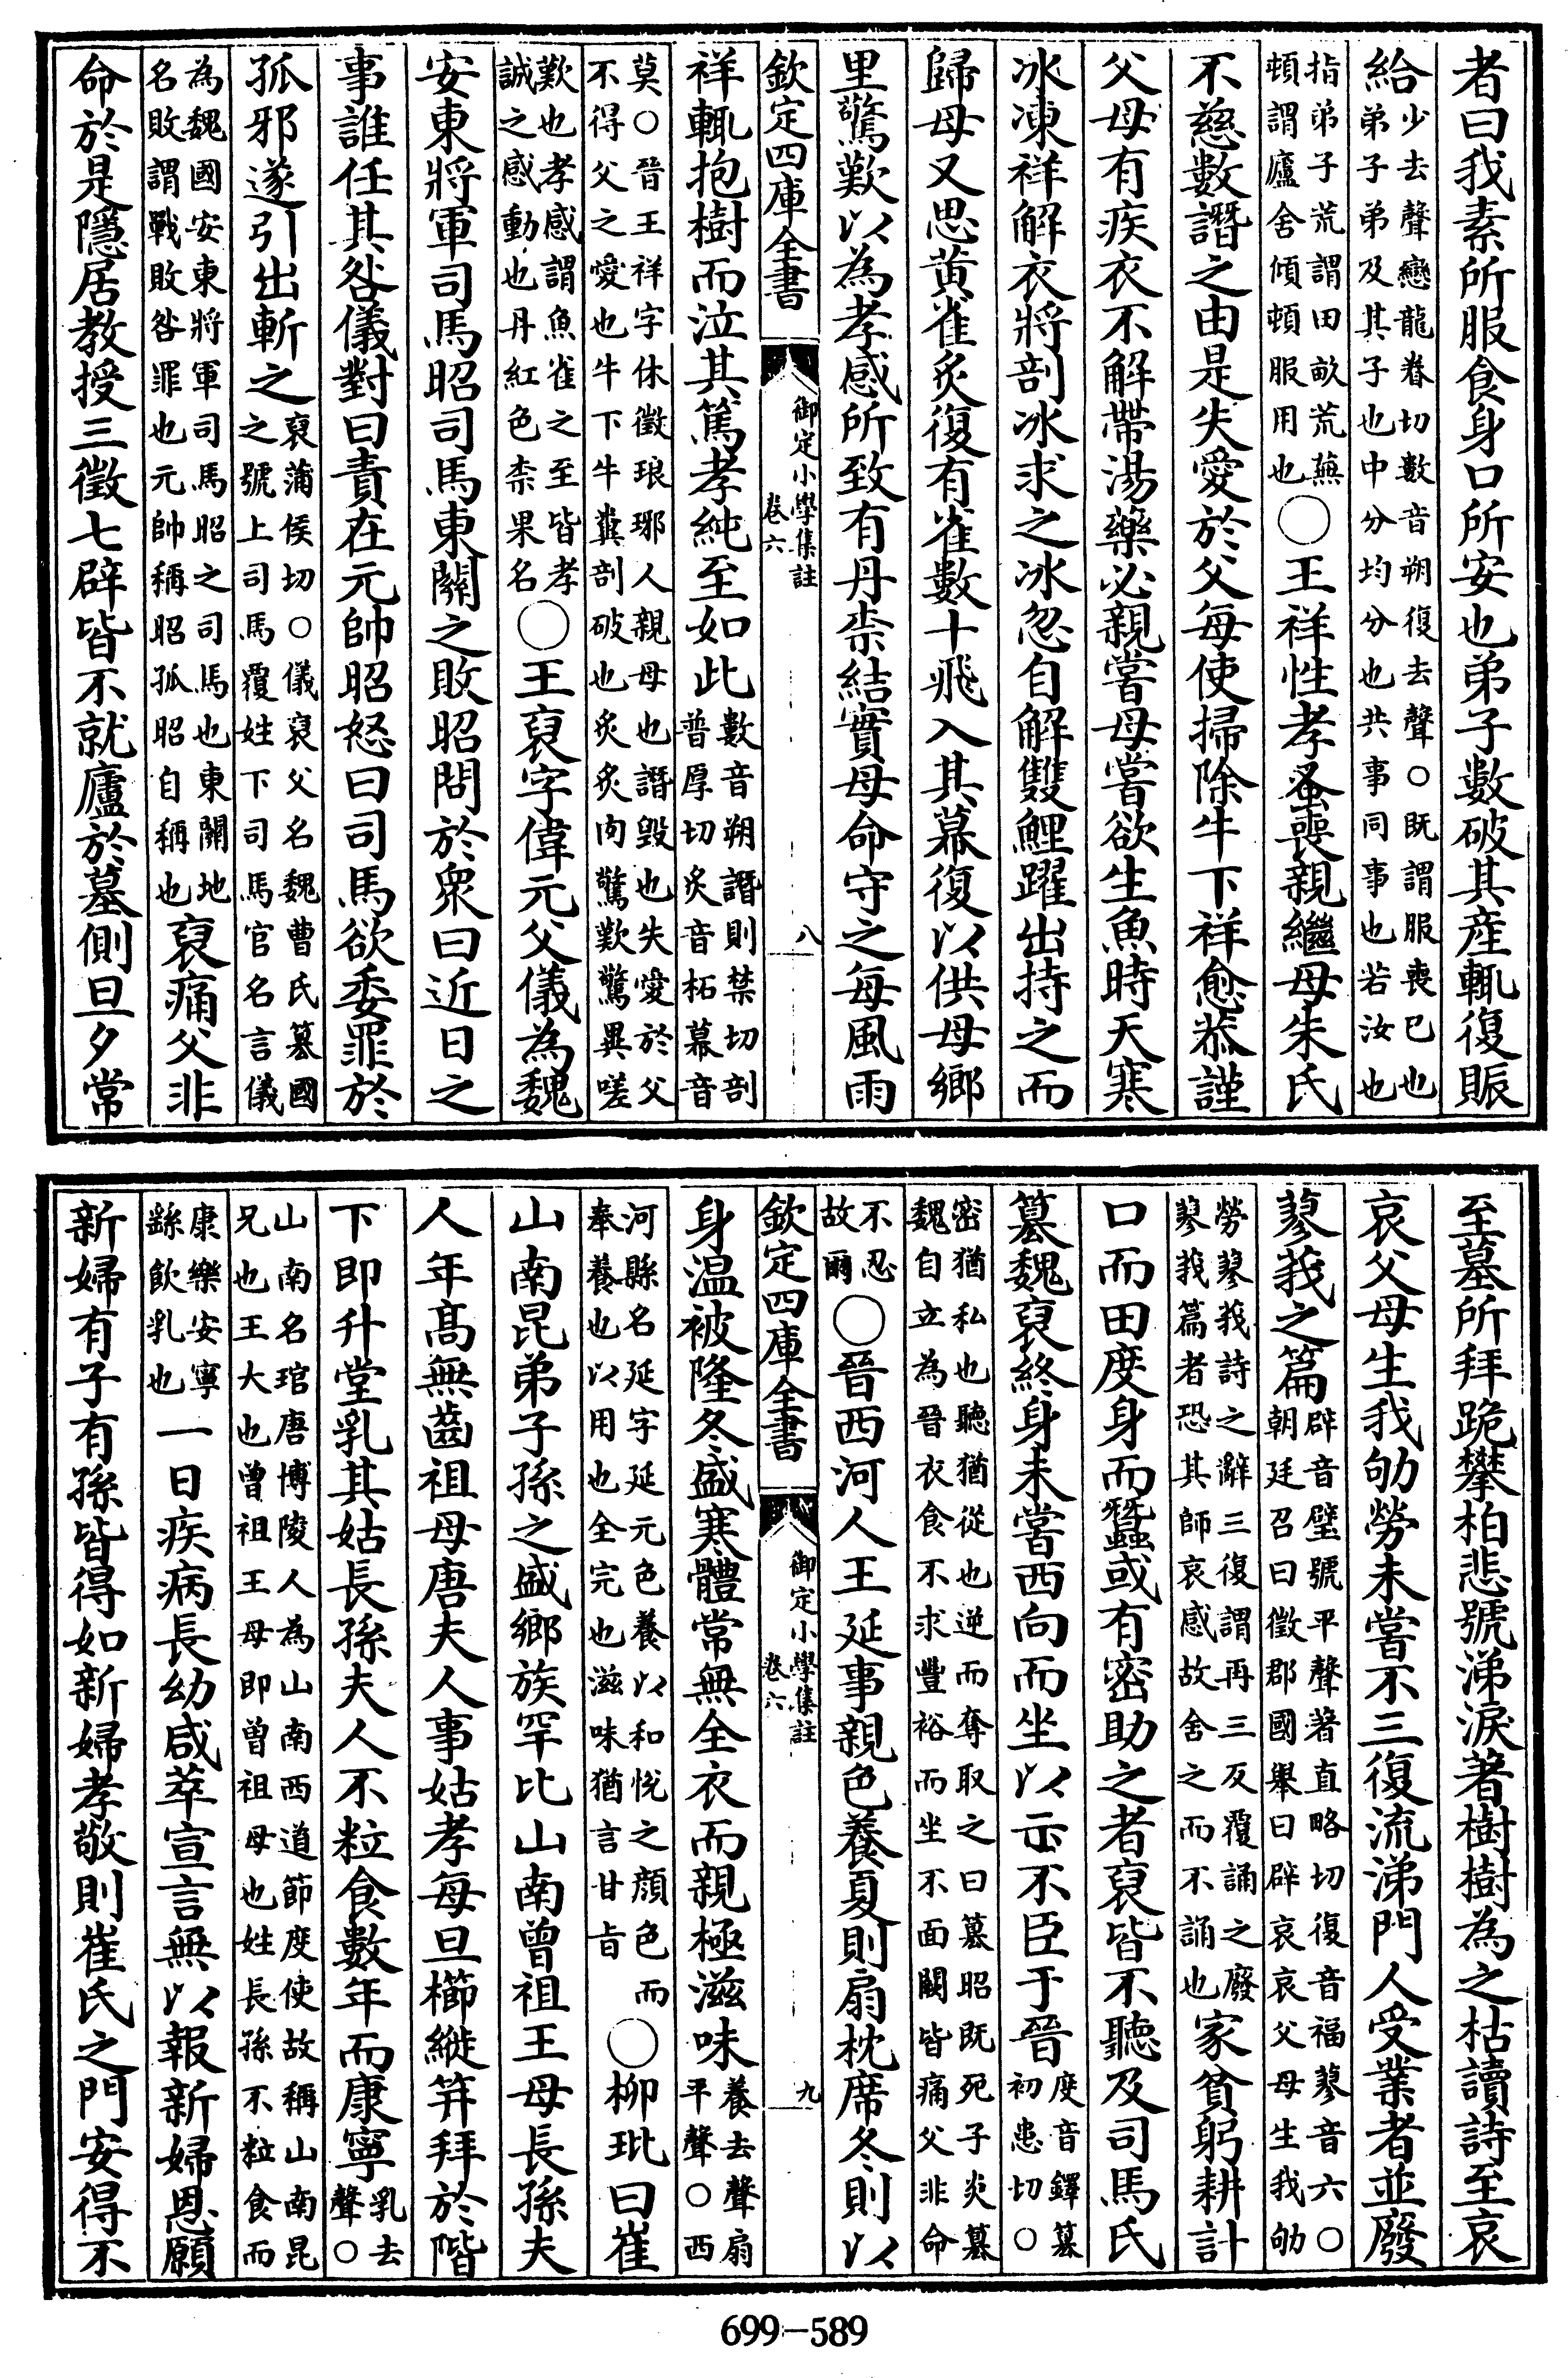 者曰我素所服食身口所安也弟子數破其産輒復賑
給少去聲戀龍眷切數音朔復去聲○既謂服喪已也
弟子弟及其子也中分均分也共事同事也若汝也
指弟子荒謂田畝荒蕪
頓謂廬舍傾頓服用也○王祥性孝蚤喪親繼母朱氏
不慈數譖之由是失愛於父每使掃除牛下祥愈恭謹
父母有疾衣不解帶湯藥必親嘗母嘗欲生魚時天寒
冰凍祥解衣將剖冰求之冰忽自解雙鯉躍出持之而
歸母又思黃雀炙復有雀數十飛入其幕復以供母鄉
里驚歎以為孝感所致有丹柰結實母命守之每風雨
欽定四庫全書
御定小學集註
卷六
八
祥輒抱樹而泣其篤孝純至如此數音朔譖則禁切剖
普厚切炙音柘幕音
莫○晉王祥字休徵琅琊人親母也譖毀也失愛於父
不得父之愛也牛下牛糞剖破也炙炙肉驚歎驚異嗟
歎也孝感謂魚雀之至皆孝
誠之感動也丹紅色柰果名○王裒字偉元父儀為魏
安東將軍司馬昭司馬東關之敗昭問於衆曰近日之
事誰任其咎儀對曰責在元帥昭怒曰司馬欲委罪於
孤邪遂引出斬之裒蒲侯切○儀裒父名魏曹氏簒國
之號上司馬覆姓下司馬官名言儀
為魏國安東將軍司馬昭之司馬也東關地
名敗謂戰敗咎罪也元帥稱昭孤昭自稱也裒痛父非
命於是隱居教授三徵七辟皆不就廬於墓側旦夕常
至墓所拜跪攀柏悲號涕淚著樹樹為之枯讀詩至哀
哀父母生我劬勞未嘗不三復流涕門人受業者並廢
蓼莪之篇辟音壁號平聲著直略切復音福蓼音六○
朝廷召曰徵郡國舉曰辟哀哀父母生我劬
勞蓼莪詩之辭三復謂再三反覆誦之廢
蓼莪篇者恐其師哀感故舍之而不誦也家貧躬耕計
口而田度身而蠶或有密助之者裒皆不聽及司馬氏
簒魏裒終身未嘗西向而坐以示不臣于晉度音鐸簒
初患切○
密猶私也聽猶從也逆而奪取之曰簒昭既死子炎簒
魏自立為晉衣食不求豐裕而坐不面闕皆痛父非命
不忍
故爾○晉西河人王延事親色養夏則扇枕席冬則以
欽定四庫全書
御定小學集註
卷六
九
身温被隆冬盛寒體常無全衣而親極滋味養去聲扇
平聲○西
河縣名延字延元色養以和悅之顔色而
奉養也以用也全完也滋味猶言甘旨○柳玭曰崔
山南昆弟子孫之盛鄉族罕比山南曾祖王母長孫夫
人年高無齒祖母唐夫人事姑孝每旦櫛縰笄拜於階
下即升堂乳其姑長孫夫人不粒食數年而康寧乳去
聲○
山南名琯唐博陵人為山南西道節度使故稱山南昆
兄也王大也曾祖王母即曾祖母也姓長孫不粒食而
康樂安寧
繇飲乳也一日疾病長幼咸萃宣言無以報新婦恩願
新婦有子有孫皆得如新婦孝敬則崔氏之門安得不
699-589